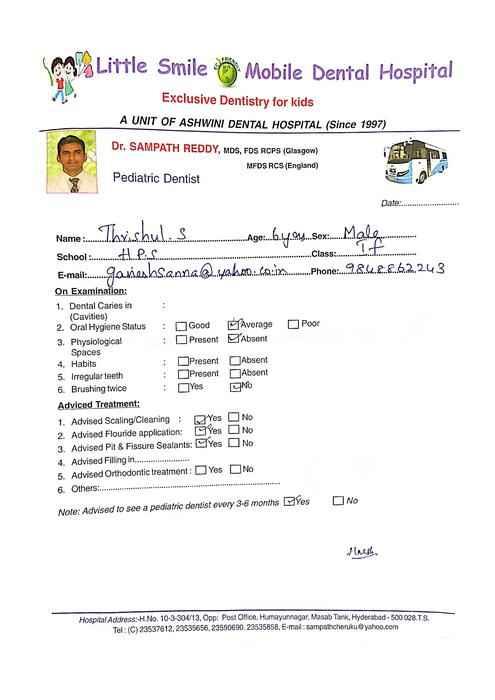 Little Smile Mobile Dental Hospital
Exclusive Dentistry for kids
A UNIT OF ASHWINI DENTAL HOSPITAL (Since 1997)
Dr. SAMPATH REDDY, MDS, FDS RCPS (Glasgow)
MFDS RCS (England)
Pediatric Dentist
Date:....................
Name: Thrishul.S Age: 6 yrs Sex: Male
School: H.P.S Class: If
E-mail: ganeshsanna@yahoo.co.in Phone: 9848862243
On Examination:
1. Dental Caries in :
(Cavities)
2. Oral Hygiene Status : Good Average Poor
3. Physiological : Present Absent
Spaces
4. Habits : Present Absent
5. Irregular teeth : Present Absent
6. Brushing twice : Yes No
Adviced Treatment:
1. Advised Scaling/Cleaning : Yes No
2. Advised Flouride application: Yes No
3. Advised Pit & Fissure Sealants: Yes No
4. Advised Filling in....................
5. Advised Orthodontic treatment : Yes No
6. Others:....................
Note: Advised to see a pediatric dentist every 3-6 months Yes No
Hospital Address:-H.No. 10-3-304/13, Opp: Post Office, Humayunnagar, Masab Tank, Hyderabad - 500 028.T.S.
Tel : (C) 23537612, 23535656, 23590690, 23535858, E-mail : sampathcheruku@yahoo.com